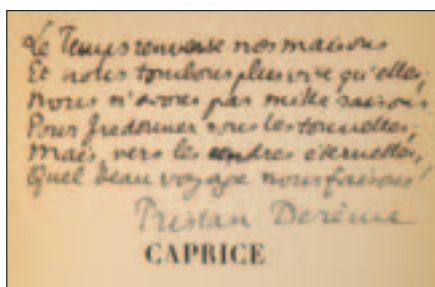 Le Temps renverse nos maisons
Et nous tombons plus vite qu'elles;
Nous n'avons pas mille saisons
Pour fredonner sous les tonnelles,
Mais vers les cendres éternelles,
Quel beau voyage nous faisons!
Tristan Derème
CAPRICE